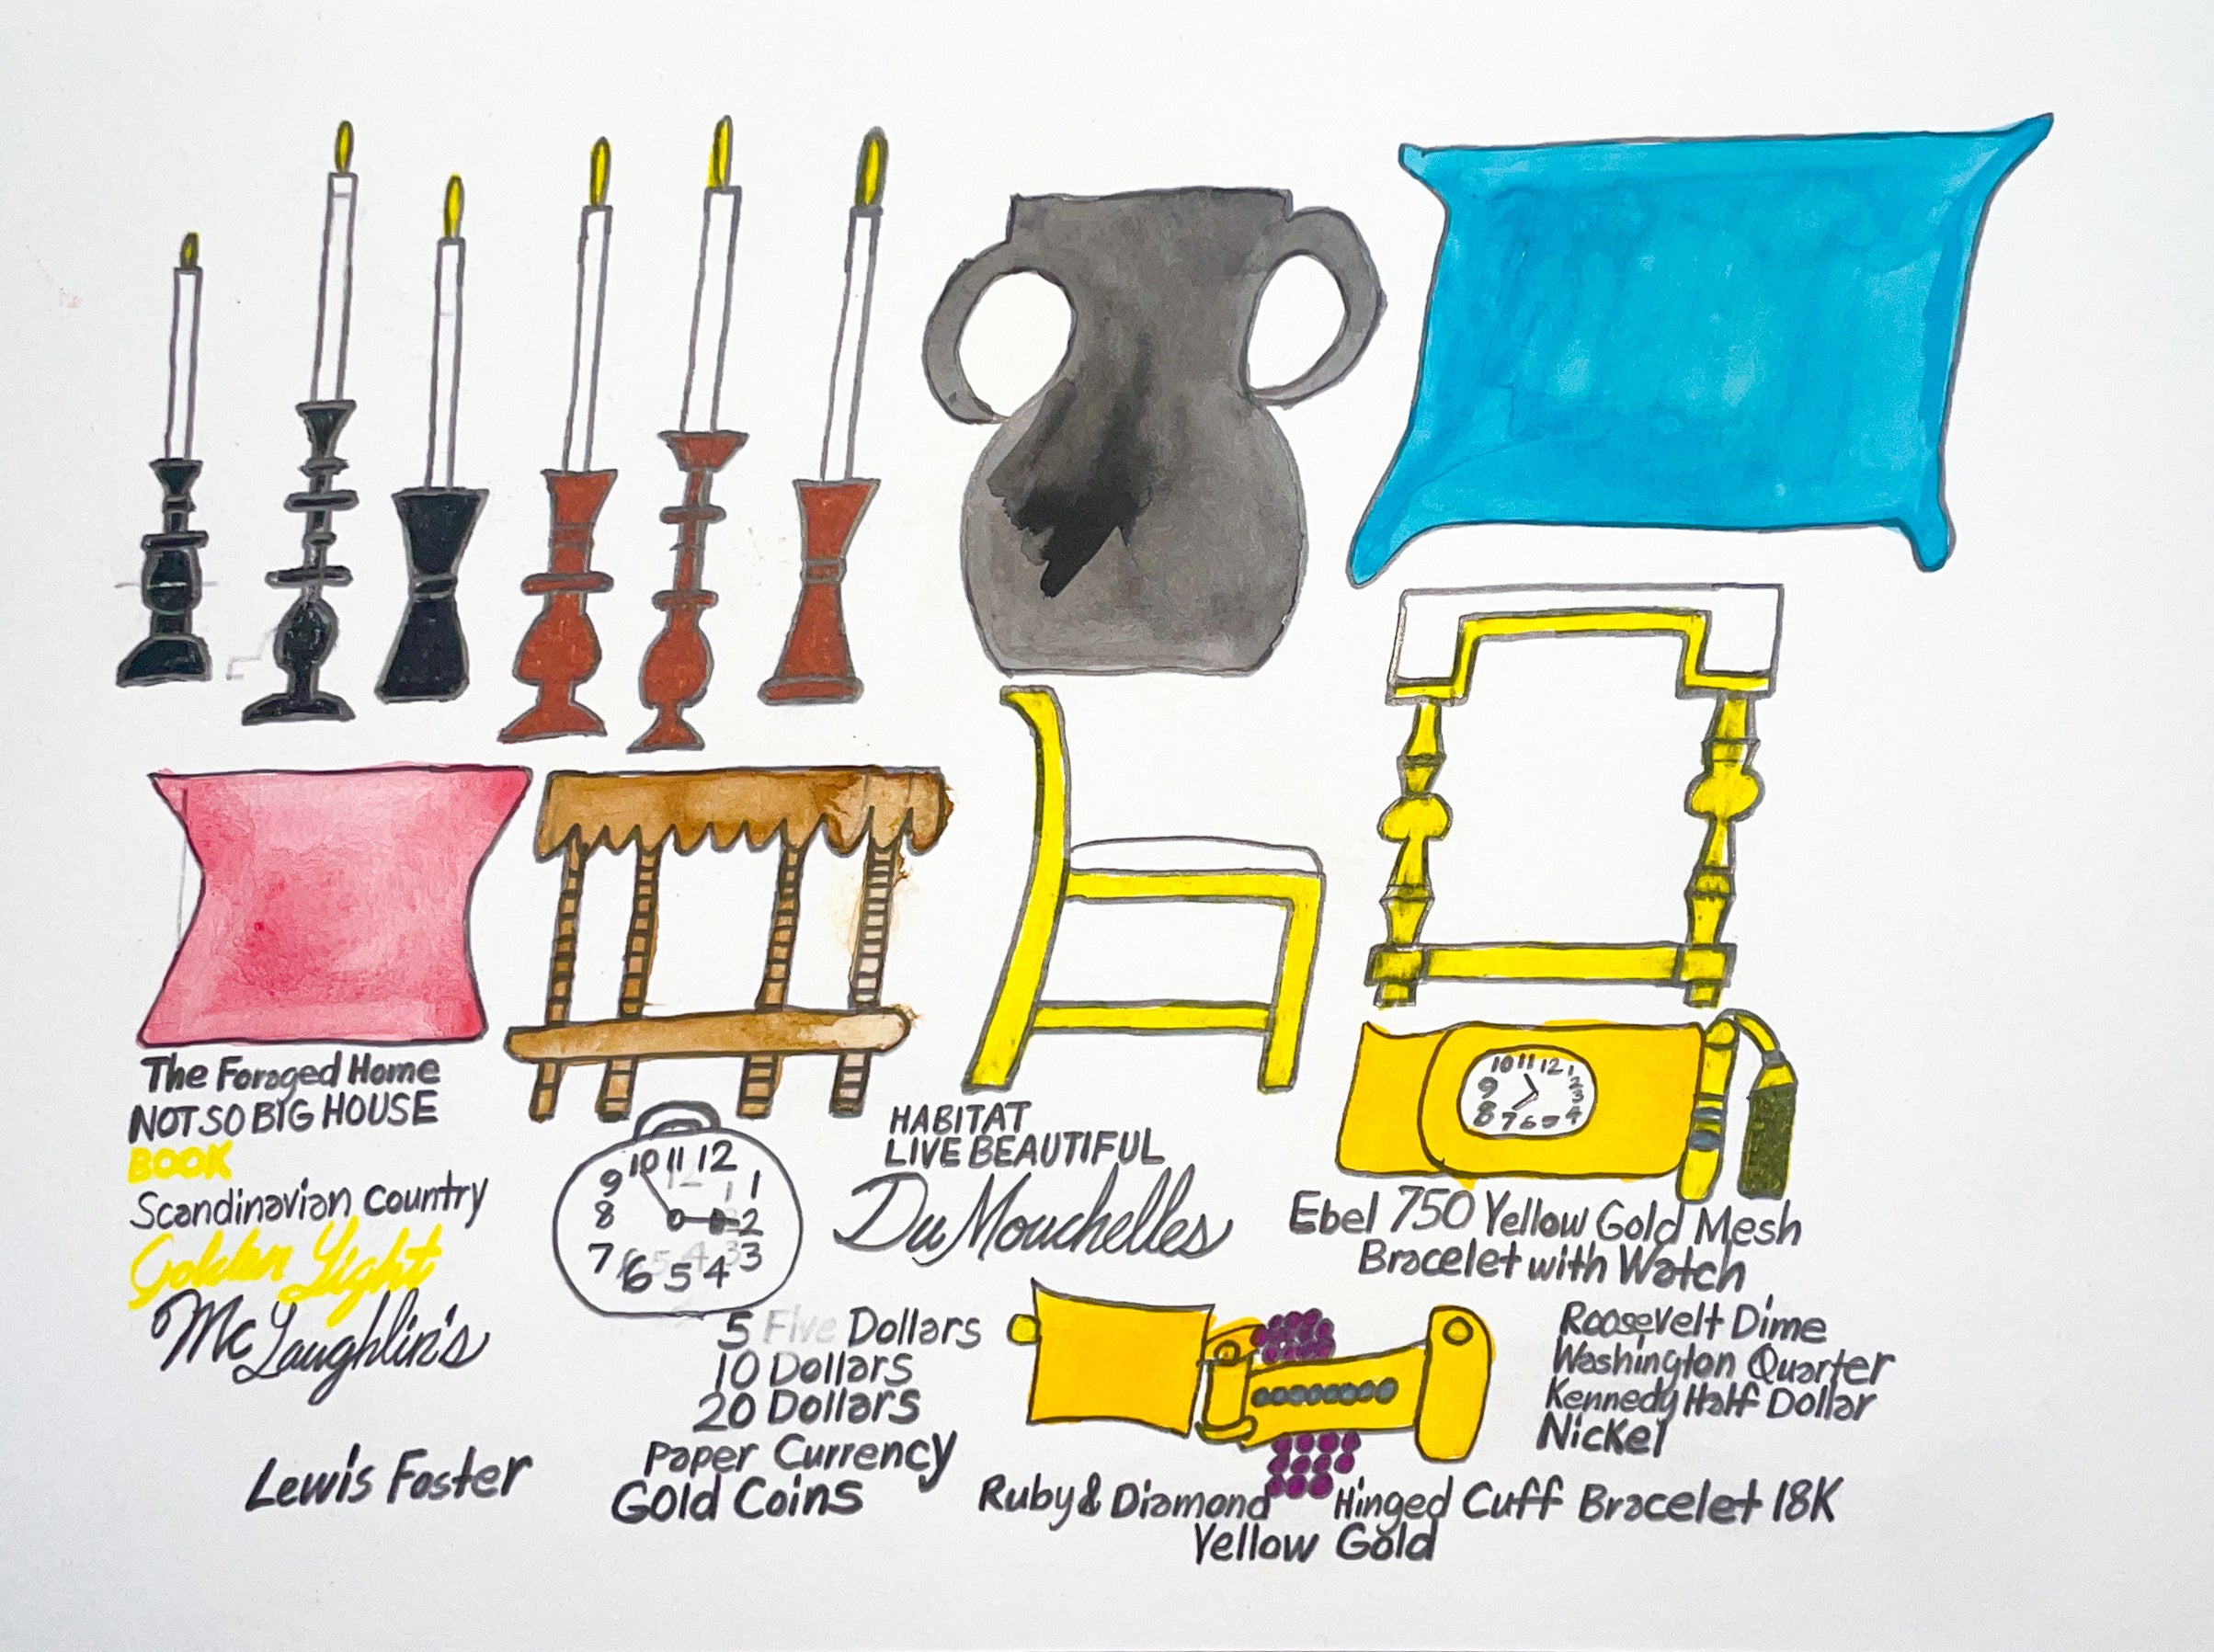 The Foraged Home
NOT SO BIG HOUSE
BOOK
Scandinavian Country
Golden Light
McLaughlin's
Lewis Foster
10 11 12
9 1
8 2
7 6 5 4 3
5 Five Dollars
10 Dollars
20 Dollars
Paper Currency
Gold Coins
HABITAT
LIVE BEAUTIFUL
DuMouchelles
10 11 12 1
9 2
3
8 7 6 5 4
Ebel 750 Yellow Gold Mesh
Bracelet with Watch
Roosevelt Dime
Washington Quarter
Kennedy Half Dollar
Nickel
Ruby & Diamond Hinged Cuff Bracelet 18K
Yellow Gold